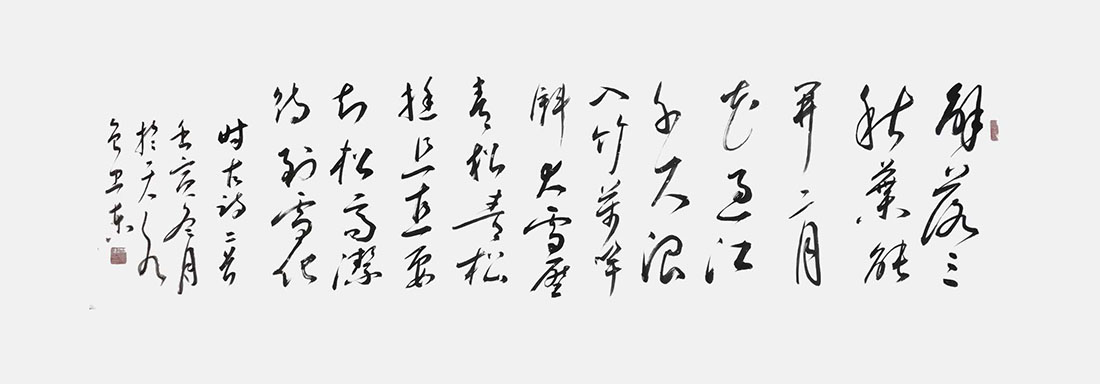 解落三
秋葉能
開二月
花過江
千尺浪
入竹萬竿
斜大雪壓
青松青松
挺且直要
知松高潔
待到雪化
時古詩二首
壬寅冬月
於天水
卫東